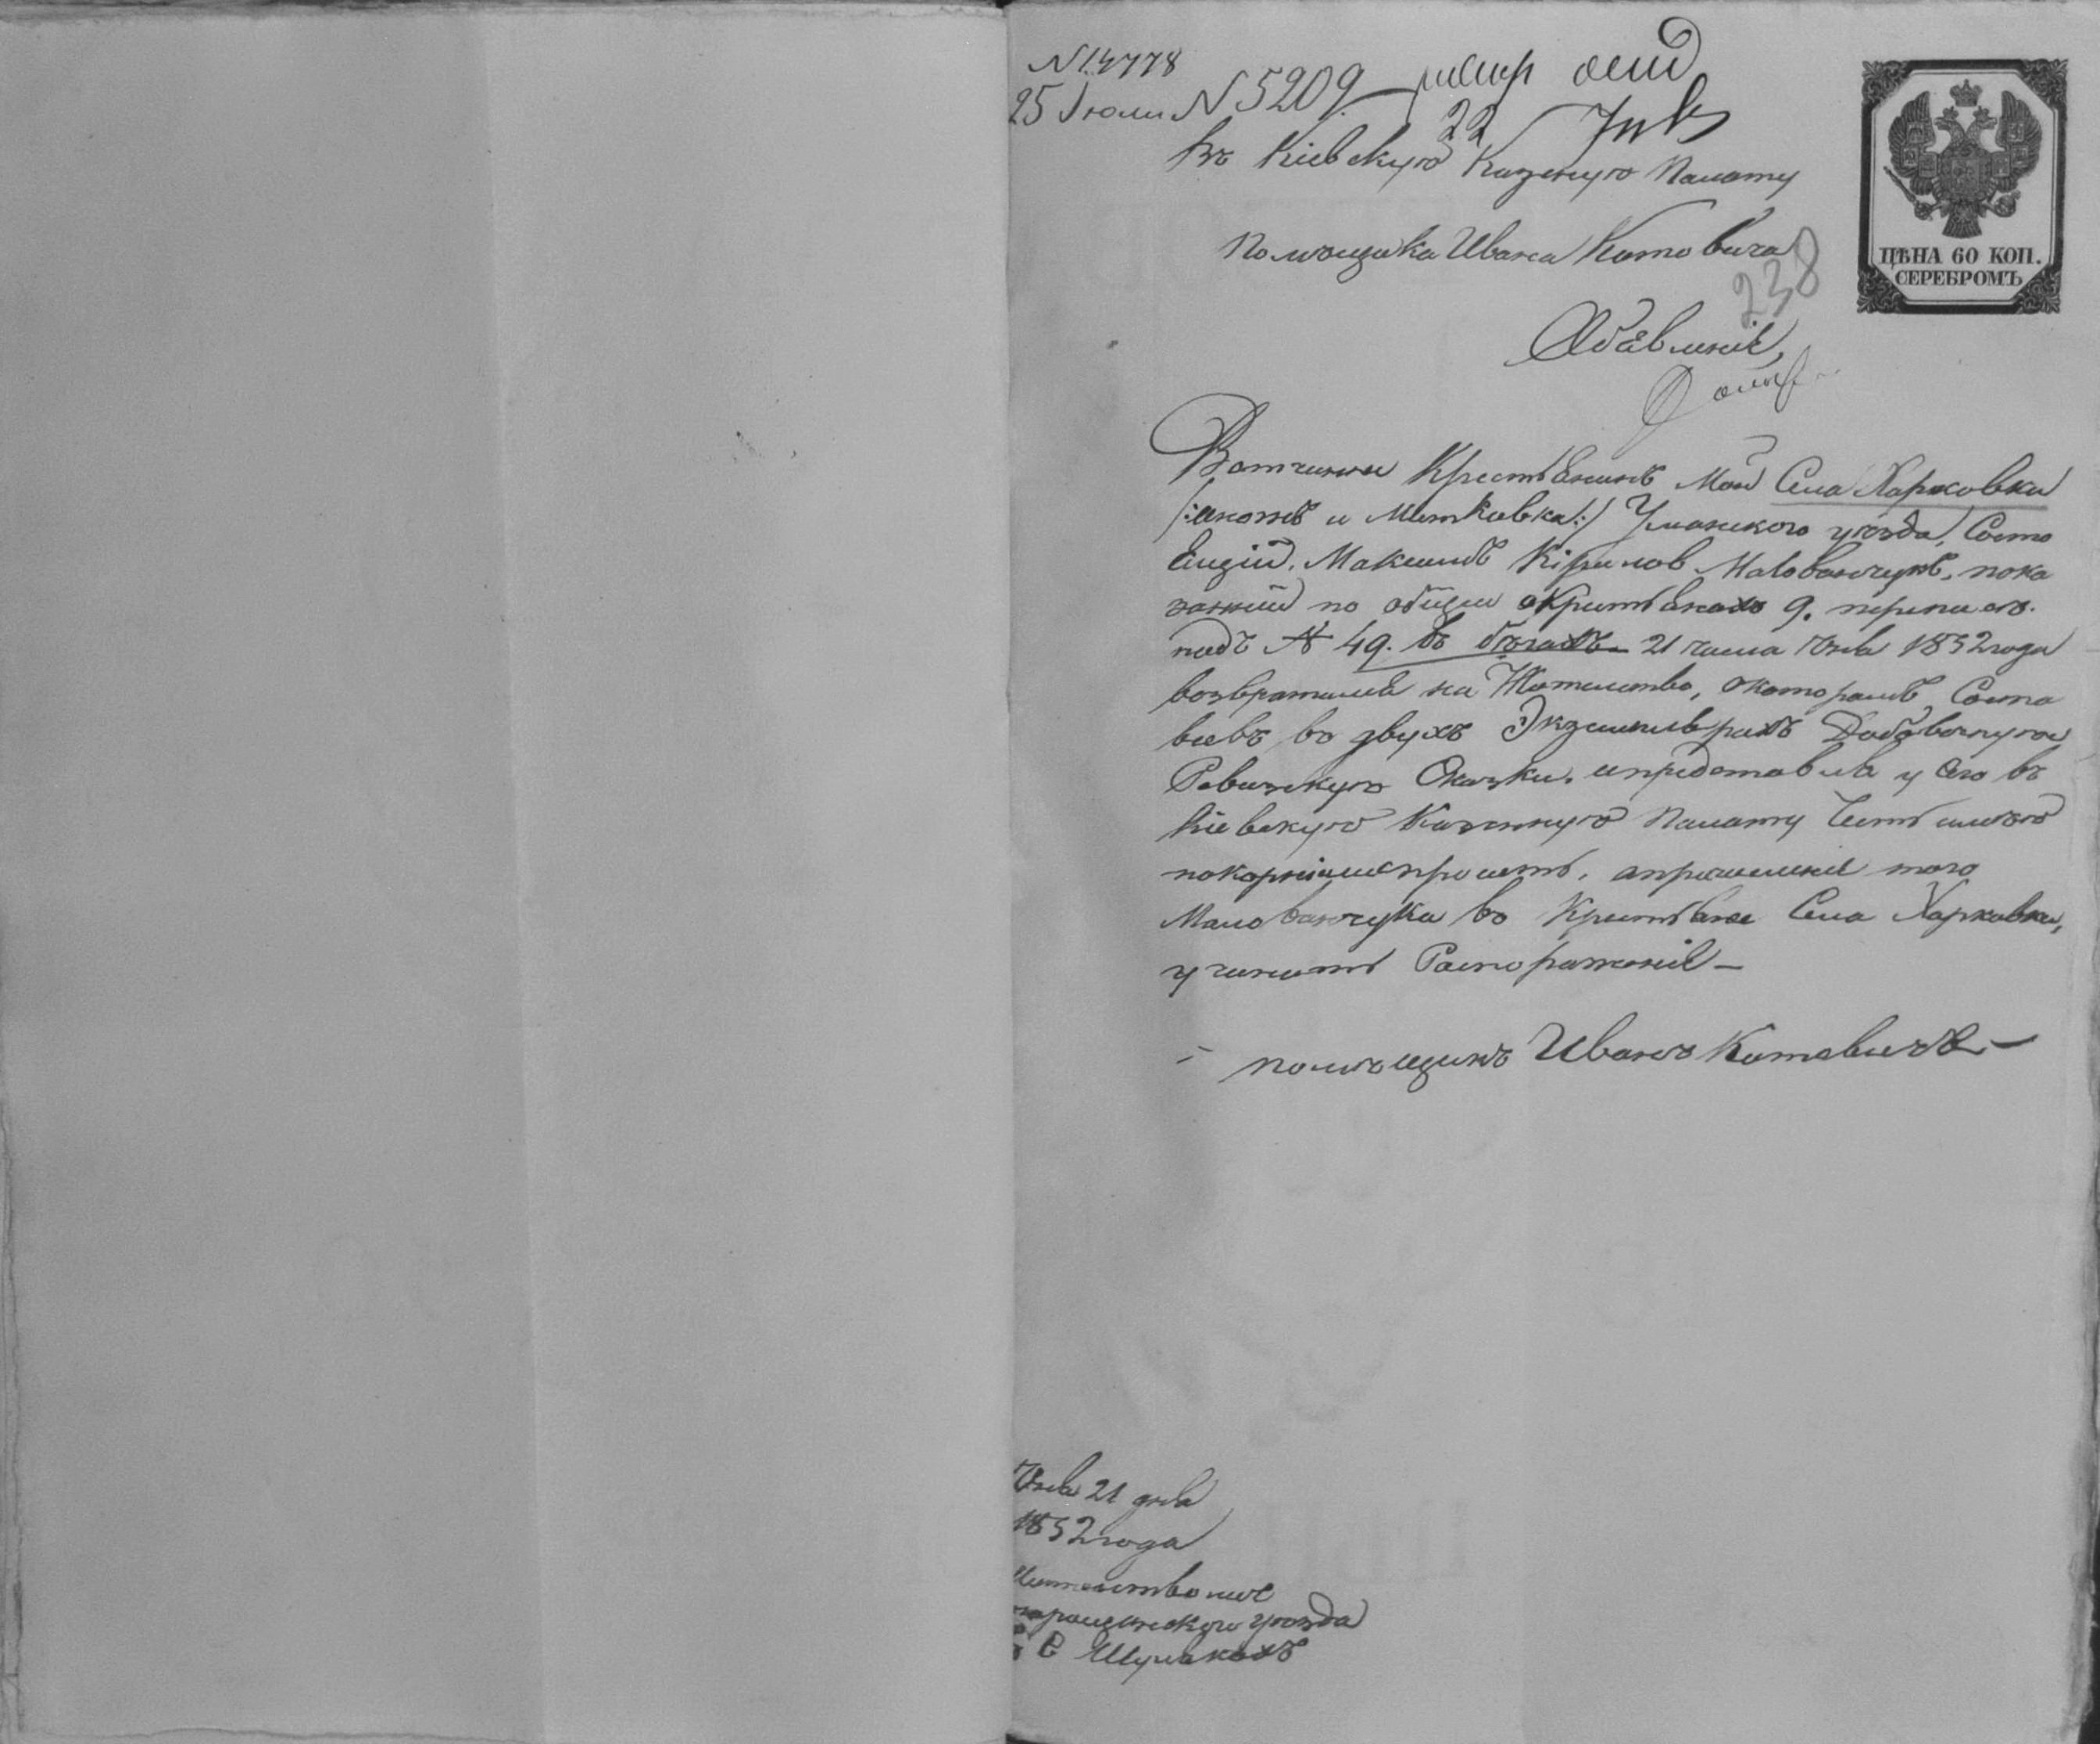 N 14778
25 Июля N 5209
22
Въ Кіевскую Казеную Палату
Помѣщика Ивана Котовича
238
ЦѢНА 60 КОП.
СЕРЕБРОМЪ
Обѣвленіе,
Вотчинны Крестьянинъ Мой Села Харковки
/:иножъ и Митковка:/ Уманского уѣзда, Состо
ящій, Максимъ Кірилов Маlованчукъ, пока
занный по общи окрестьянахъ 9. переписъ.
подъ № 49. въ бѣгахъ 21 числа Юня 1852 года
возвратился на Жителство, окоторомъ Соста
вивъ во двухъ Экземплярахъ Добавочную
Ревизскую Сказки. ипредставля у Сего въ
Кіевскую Казенную Палату Честь имѣю
покорнішепросить, опричисленіе того
Малованчука во Крестьяне Села Харковки,
учинить Распоряженіе—
помѣщикъ Иванъ Котовичъ—
Юня 21 дня
1852 года
Жителство мое
таращанского уѣзда
в С Шуляках